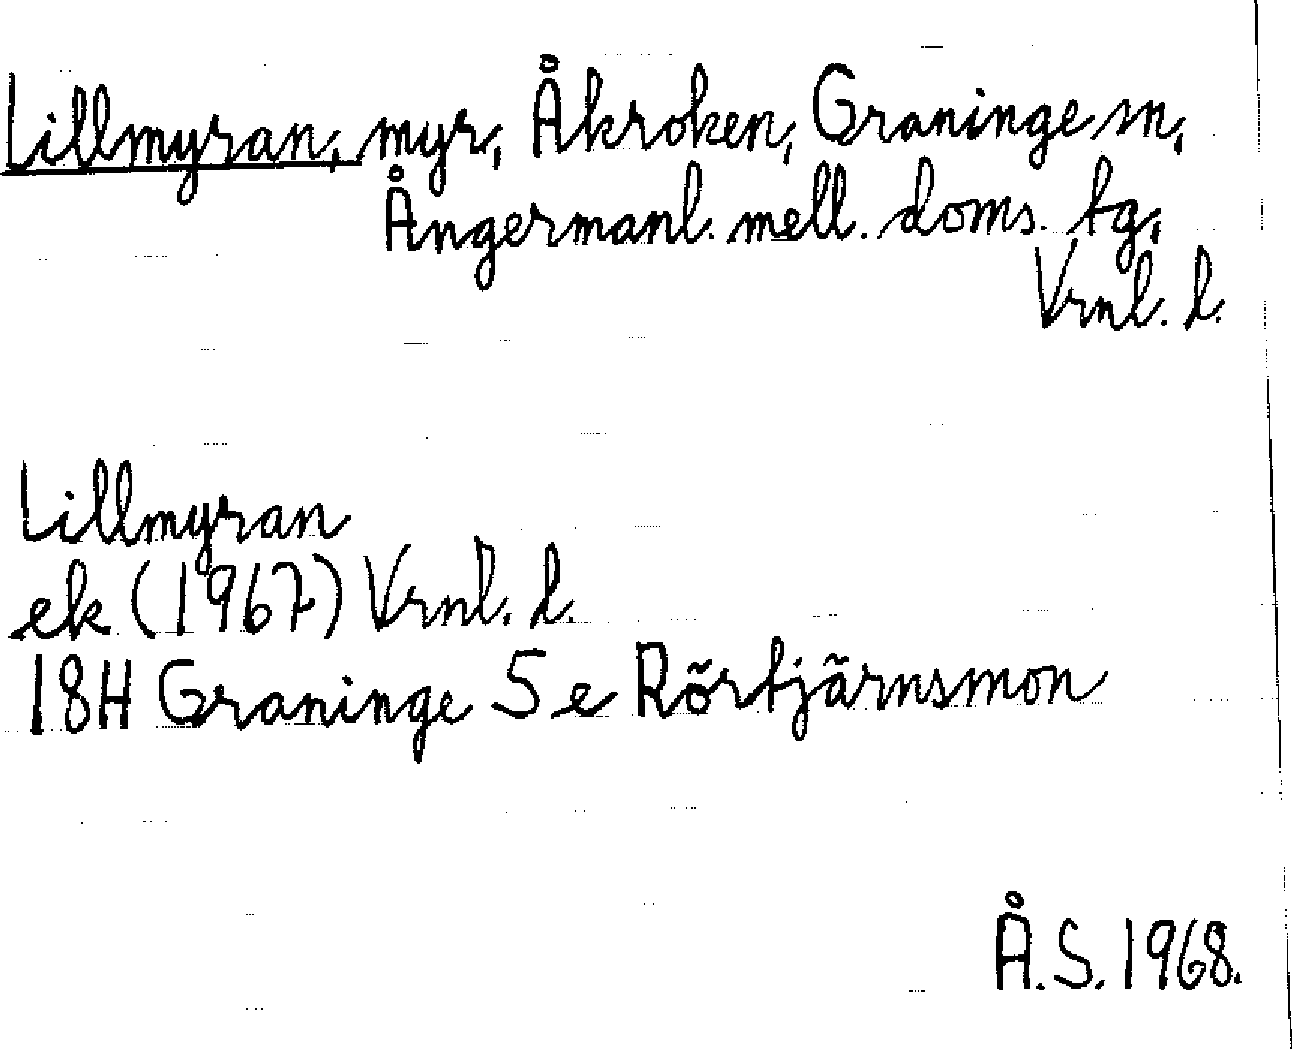 Lillmyran, myr, Åkroken, Graninge sn,
Ångermanl. mell. doms. tg,
Vrnl. l.
Lillmyran
ek (1967) Vrnl. l.
18H Graninge 5e Rörtjärnsmon
Å.S. 1968.